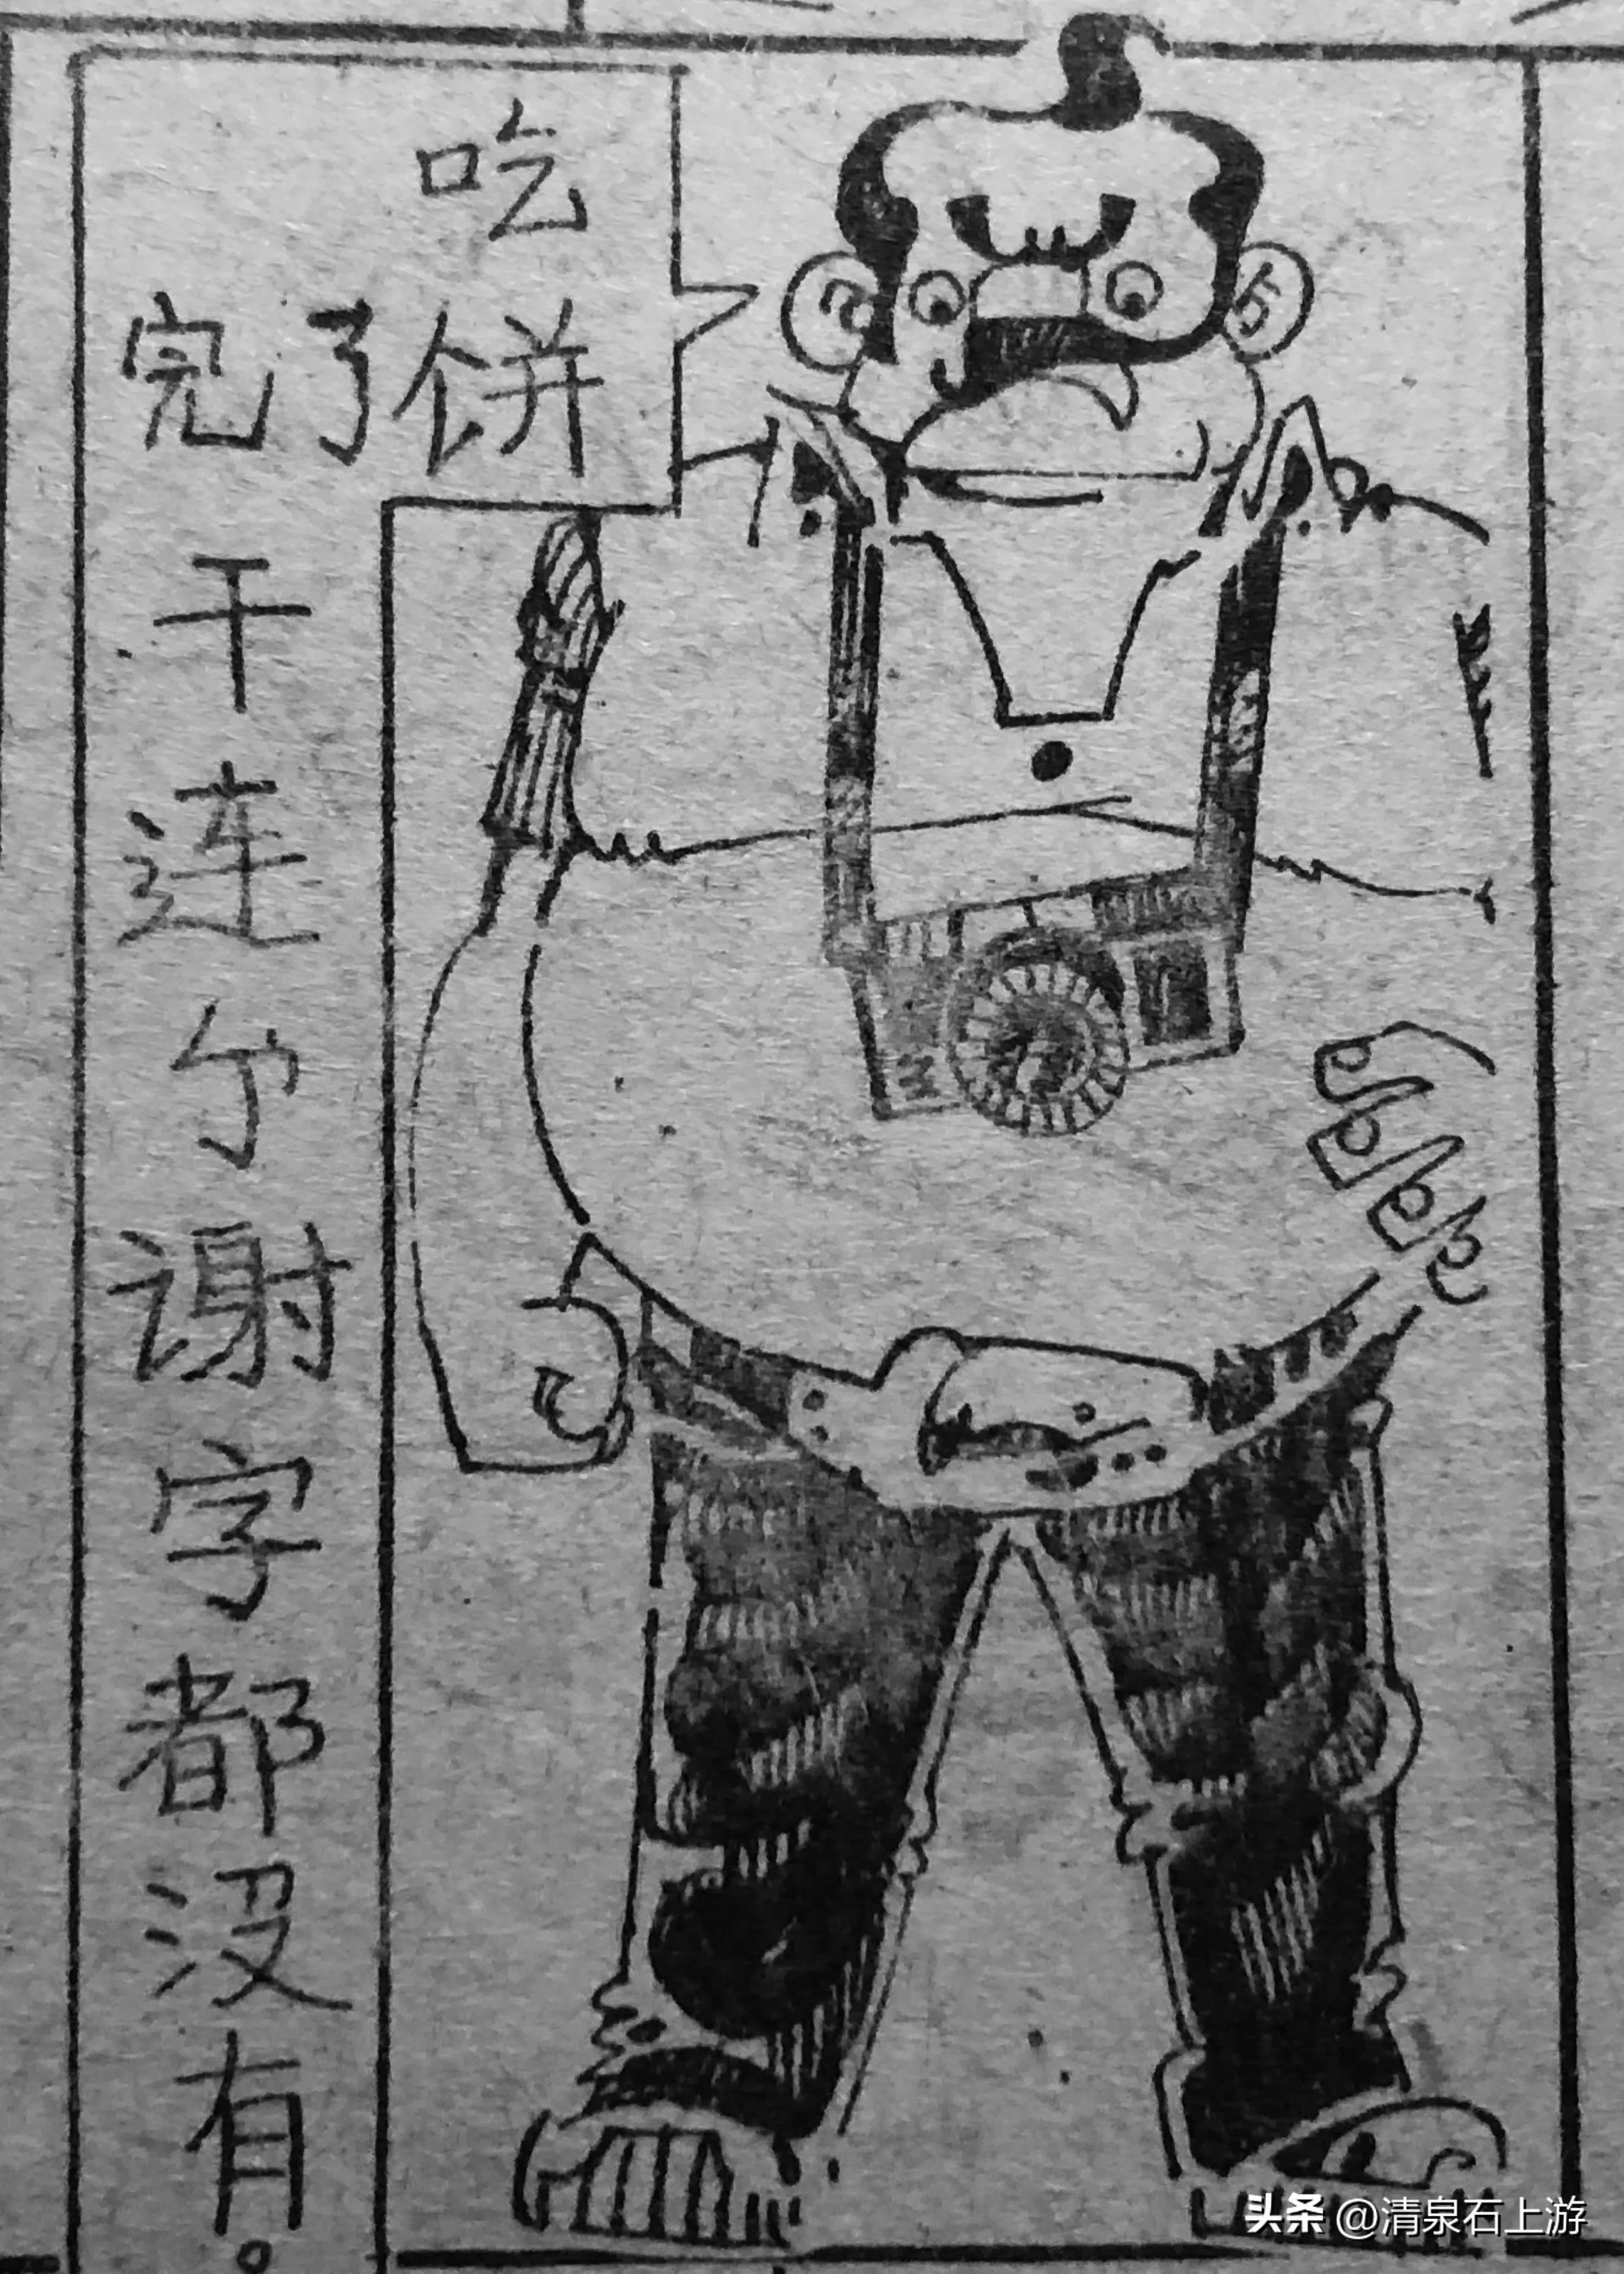 吃
完了饼
干
连
个
谢
字
都
没
有。
头条 @清泉石上游